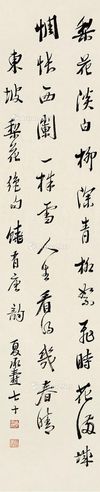 梨花淡白柳深青柳絮飛時花滿城
惆悵西闌一株雪人生看得幾春晴
東坡梨花絕句饒有唐韻夏承燾七十